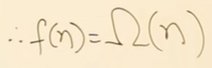 ∴ f(n) = Ω(n)